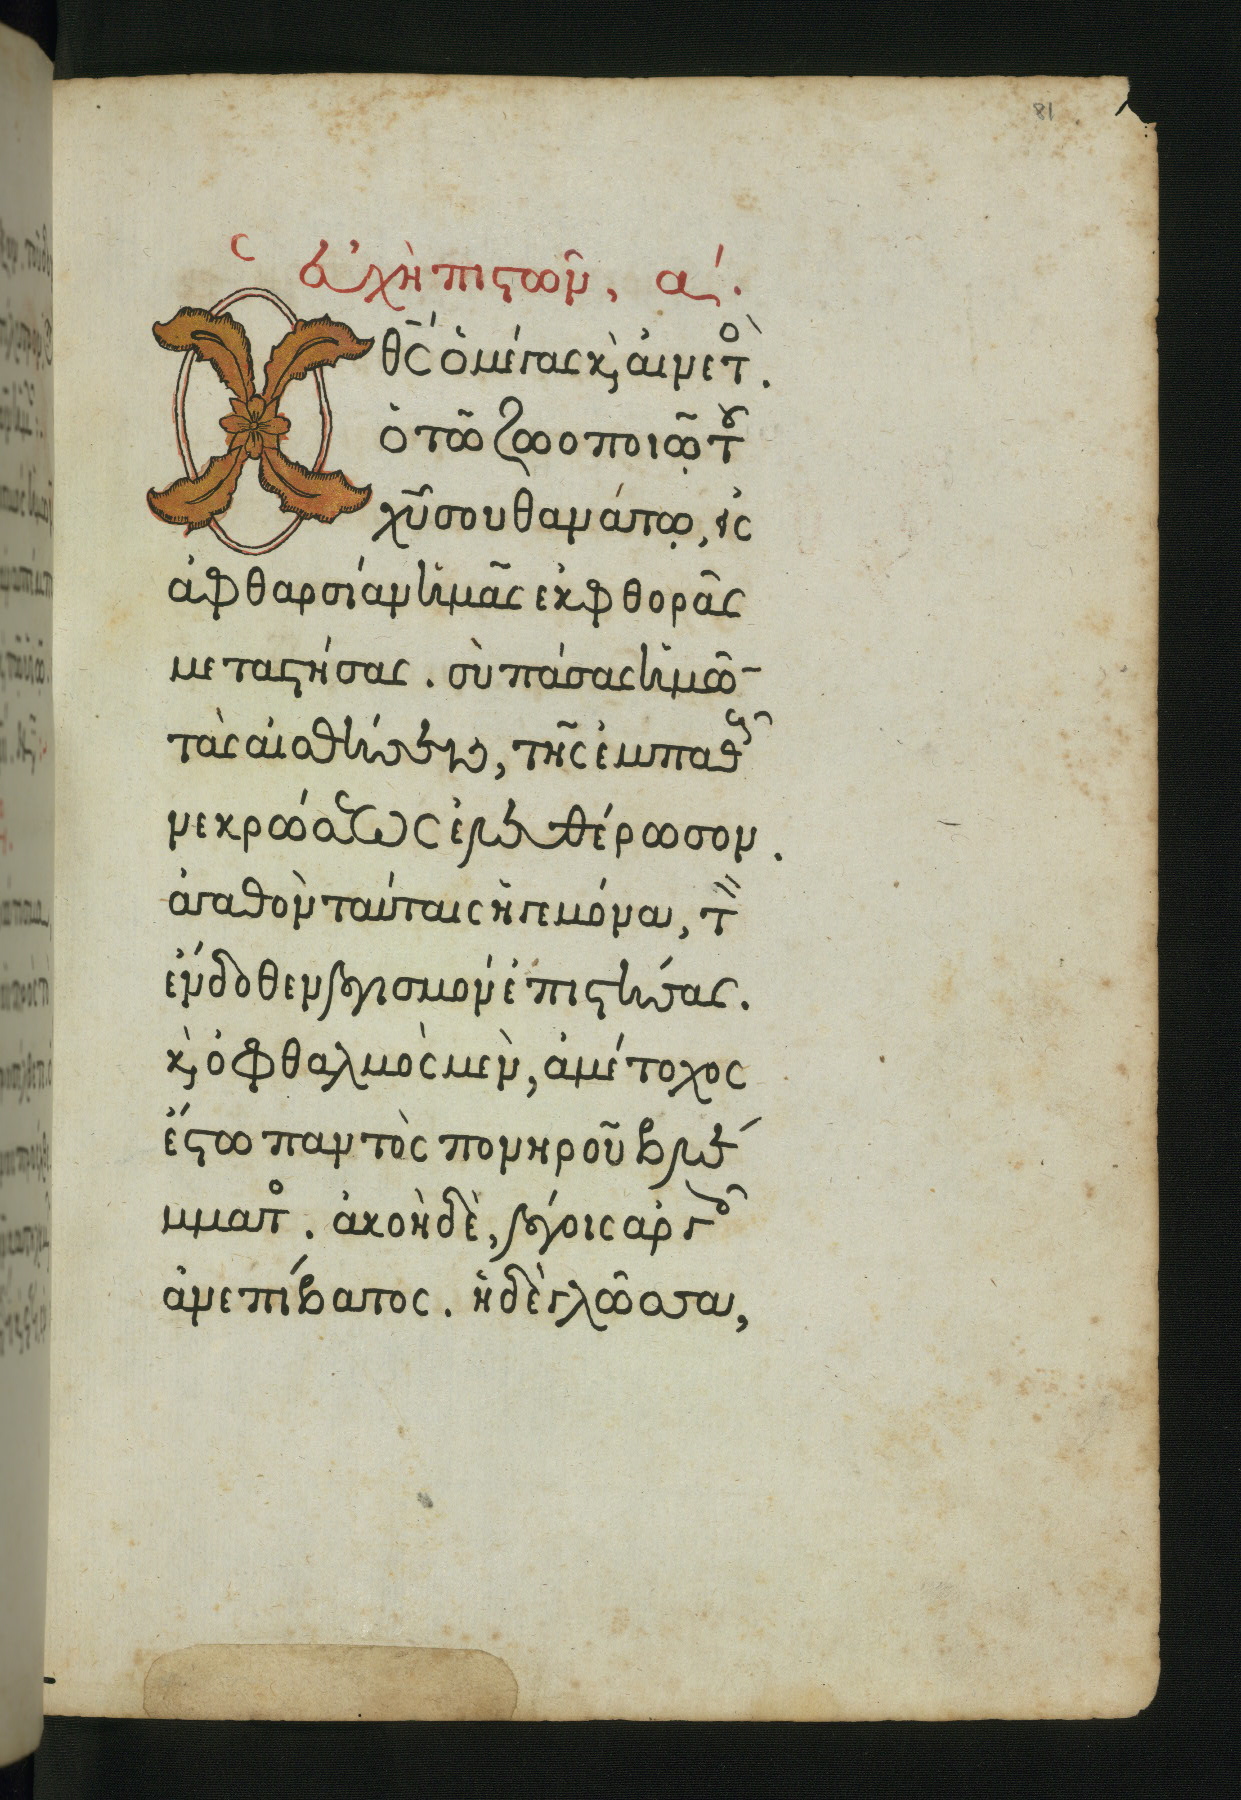 81
εὐχὴ πιστῶν, α΄.
Ὁ θς̅ ὁ μέγας κ̀ αἰνετὸ.
ὁ τῶ ζωοποιῶ τοῦ
χῦ σου θανάτω, εἰς
ἀφθαρσίαν ἡμᾶς ἐκ φθορᾶς
μεταστήσας. σὺ πάσας ἡμῶν
τὰς αἰσθήσεις, τῆς ἐμπαθοῦς
νεκρώσεως ἐλευθέρωσον.
ἀγαθὸν ταύταις ἡγεμόνα, τὸν
ἔνδοθεν λογισμὸν ἐπιστήσας.
κ̀ ὀφθαλμὸς μὲν, ἀμέτοχος
ἔστω παντὸς πονηροῦ βλέ
μματο. ἀκοὴ δὲ, λόγοις ἀργοῖς
ἀνεπίβατος. ἡ δὲ γλῶσσα,